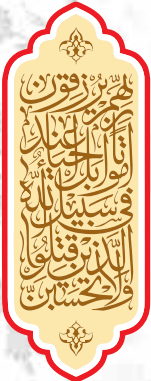 وَلَا تَحْسَبَنَّ
الَّذِينَ قُتِلُوا
فِي سَبِيلِ اللَّهِ
أَمْوَاتًا بَلْ أَحْيَاءٌ عِنْدَ
رَبِّهِمْ يُرْزَقُونَ